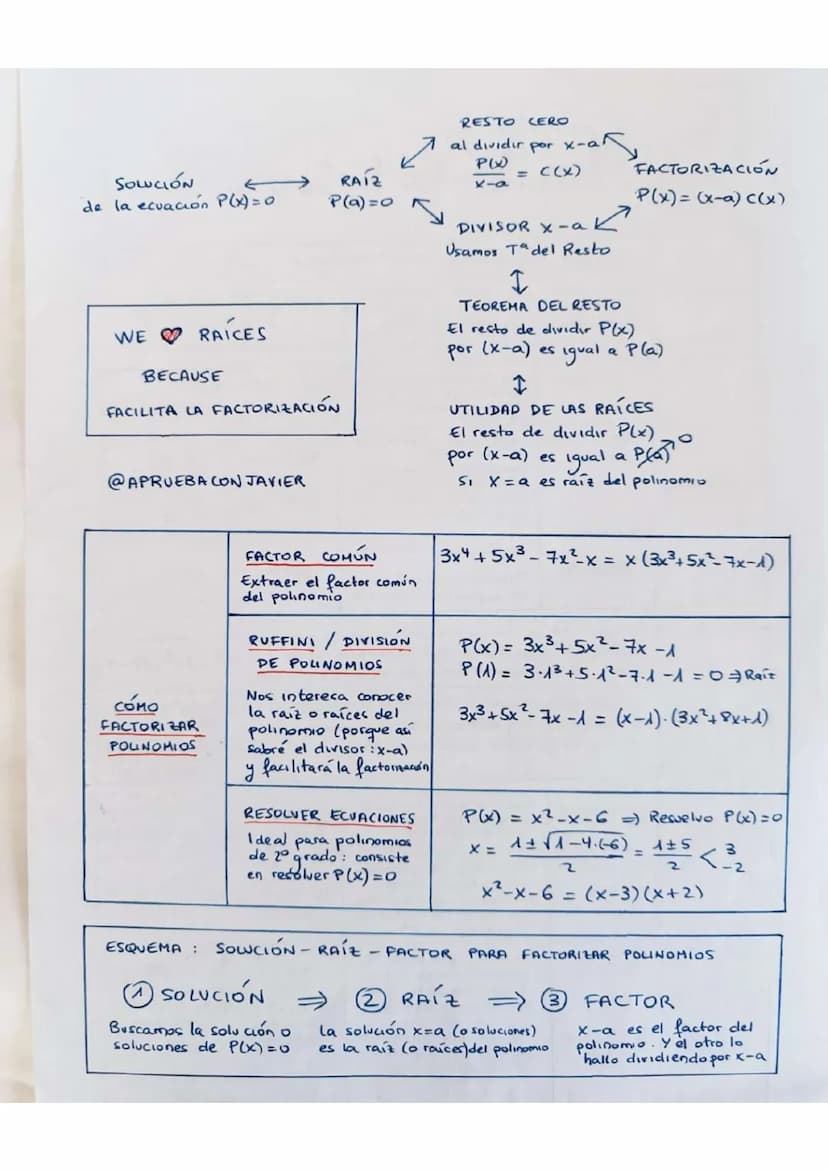 RESTO CERO
al dividir por x-a
P(x)/x-a = C(x)
SOLUCIÓN
de la ecuación P(x)=0
RAÍZ
P(a)=0
FACTORIZACIÓN
P(x)=(x-a) C(x)
DIVISOR x-a
Usamos Tª del Resto
TEOREMA DEL RESTO
El resto de dividir P(x)
por (x-a) es igual a P(a)
UTILIDAD DE LAS RAÍCES
El resto de dividir P(x)
por (x-a) es igual a P(a) 0
Si x=a es raíz del polinomio
WE ❤ RAÍCES
BECAUSE
FACILITA LA FACTORIZACIÓN
@APRUEBACONJAVIER
CÓMO
FACTORIZAR
POLINOMIOS
FACTOR COMÚN
Extraer el factor común
del polinomio
3x⁴+5x³-7x²-x = x(3x³+5x²-7x-1)
RUFFINI / DIVISIÓN
DE POLINOMIOS
Nos interesa conocer
la raíz o raíces del
polinomio (porque así
sabré el divisor: x-a)
y facilitará la factorización
P(x) = 3x³+5x²-7x-1
P(1) = 3·1³+5·1²-7·1-1 = 0 ⇒ Raíz
3x³+5x²-7x-1 = (x-1)·(3x²+8x+1)
RESOLVER ECUACIONES
Ideal para polinomios
de 2º grado: consiste
en resolver P(x)=0
P(x) = x²-x-6 ⇒ Resuelvo P(x)=0
x = 1±√1-4·(-6)/2 = 1±5/2 < 3 -2
x²-x-6 = (x-3)(x+2)
ESQUEMA: SOLUCIÓN-RAÍZ-FACTOR PARA FACTORIZAR POLINOMIOS
① SOLUCIÓN ⇒ ② RAÍZ ⇒ ③ FACTOR
Buscamos la solución o
soluciones de P(x)=0
La solución x=a (o soluciones)
es la raíz (o raíces) del polinomio
x-a es el factor del
polinomio. Y el otro lo
hallo dividiendo por x-a